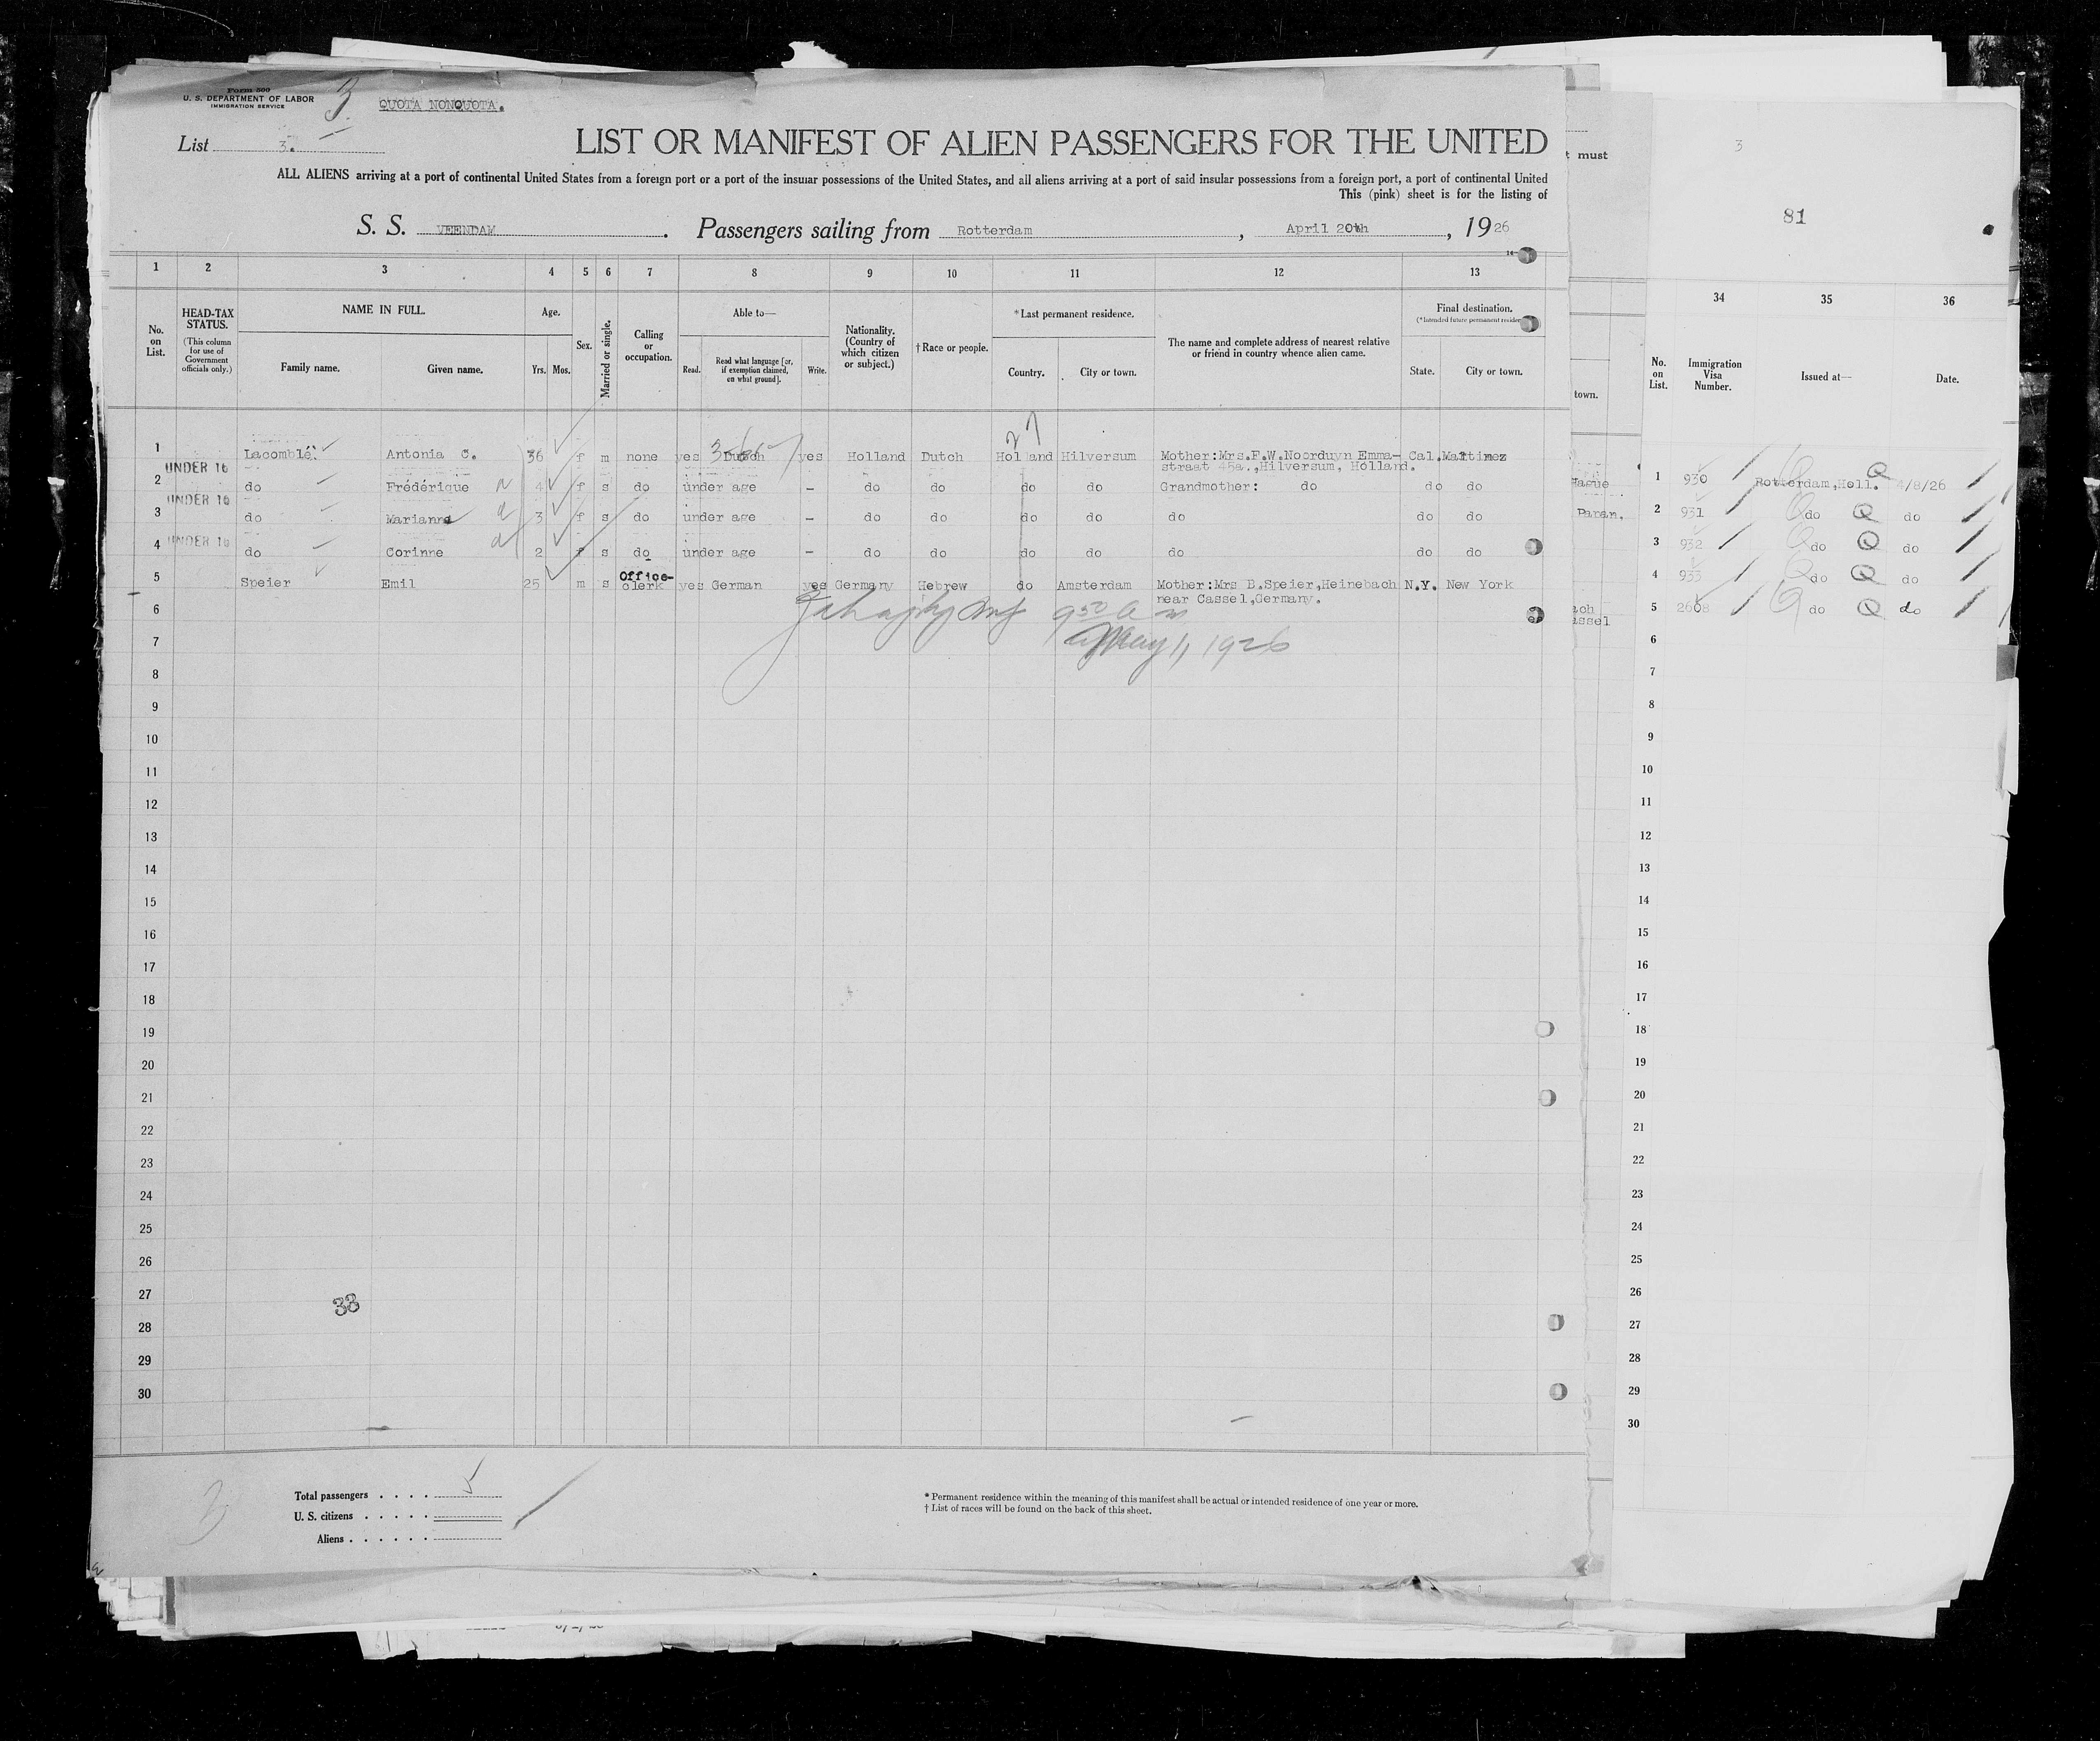 Form 500
U. S. DEPARTMENT OF LABOR
IMMIGRATION SERVICE
3
QUOTA NONQUOTA.
List 3.
LIST OR MANIFEST OF ALIEN PASSENGERS FOR THE UNITED
ALL ALIENS arriving at a port of continental United States from a foreign port or a port of the insular possessions of the United States, and all aliens arriving at a port of said insular possessions from a foreign port, a port of continental United
This (pink) sheet is for the listing of
S. S. VEENDAM. Passengers sailing from Rotterdam, April 20th, 1926
1 2 3 4 5 6 7 8 9 10 11 12 13
No. on List.
HEAD-TAX STATUS. (This column for use of Government officials only.)
NAME IN FULL.
Family name. Given name.
Age.
Yrs. Mos.
Sex.
Married or single.
Calling or occupation.
Able to—
Read. Read what language [or, if exemption claimed, on what ground]. Write.
Nationality. (Country of which citizen or subject.)
† Race or people.
* Last permanent residence.
Country. City or town.
The name and complete address of nearest relative or friend in country whence alien came.
Final destination.
(* Intended future permanent residen
State. City or town.
1 Lacomblé. Antonia C. 36 f m none yes Dutch yes Holland Dutch Holland Hilversum Mother:Mrs.F.W.Noorduyn Emma- Cal. Martinez
straat 45a.,Hilversum, Holland.
UNDER 16
2 do Frédérique 4 f s do under age - do do do do Grandmother: do do do
UNDER 16
3 do Marianne 3 f s do under age - do do do do do do do
UNDER 16
4 do Corinne 2 f s do under age - do do do do do do do
5 Speier Emil 25 m s Office-clerk yes German yes Germany Hebrew do Amsterdam Mother:Mrs B.Speier,Heinebach N.Y. New York
near Cassel,Germany.
6
950 a m
May 1, 1926
7
8
9
10
11
12
13
14
15
16
17
18
19
20
21
22
23
24
25
26
27
33
28
29
30
3
Total passengers . . . . 5
U. S. citizens . . . . .
Aliens . . . . . .
* Permanent residence within the meaning of this manifest shall be actual or intended residence of one year or more.
† List of races will be found on the back of this sheet.
must
town.
Hague
Paran.
ach
assel
3
81
34 35 36
No. on List.
Immigration Visa Number.
Issued at—
Date.
1 930 Rotterdam,Holl. Q 4/8/26
2 931 do Q do
3 932 do Q do
4 933 do Q do
5 2608 do Q do
6
7
8
9
10
11
12
13
14
15
16
17
18
19
20
21
22
23
24
25
26
27
28
29
30